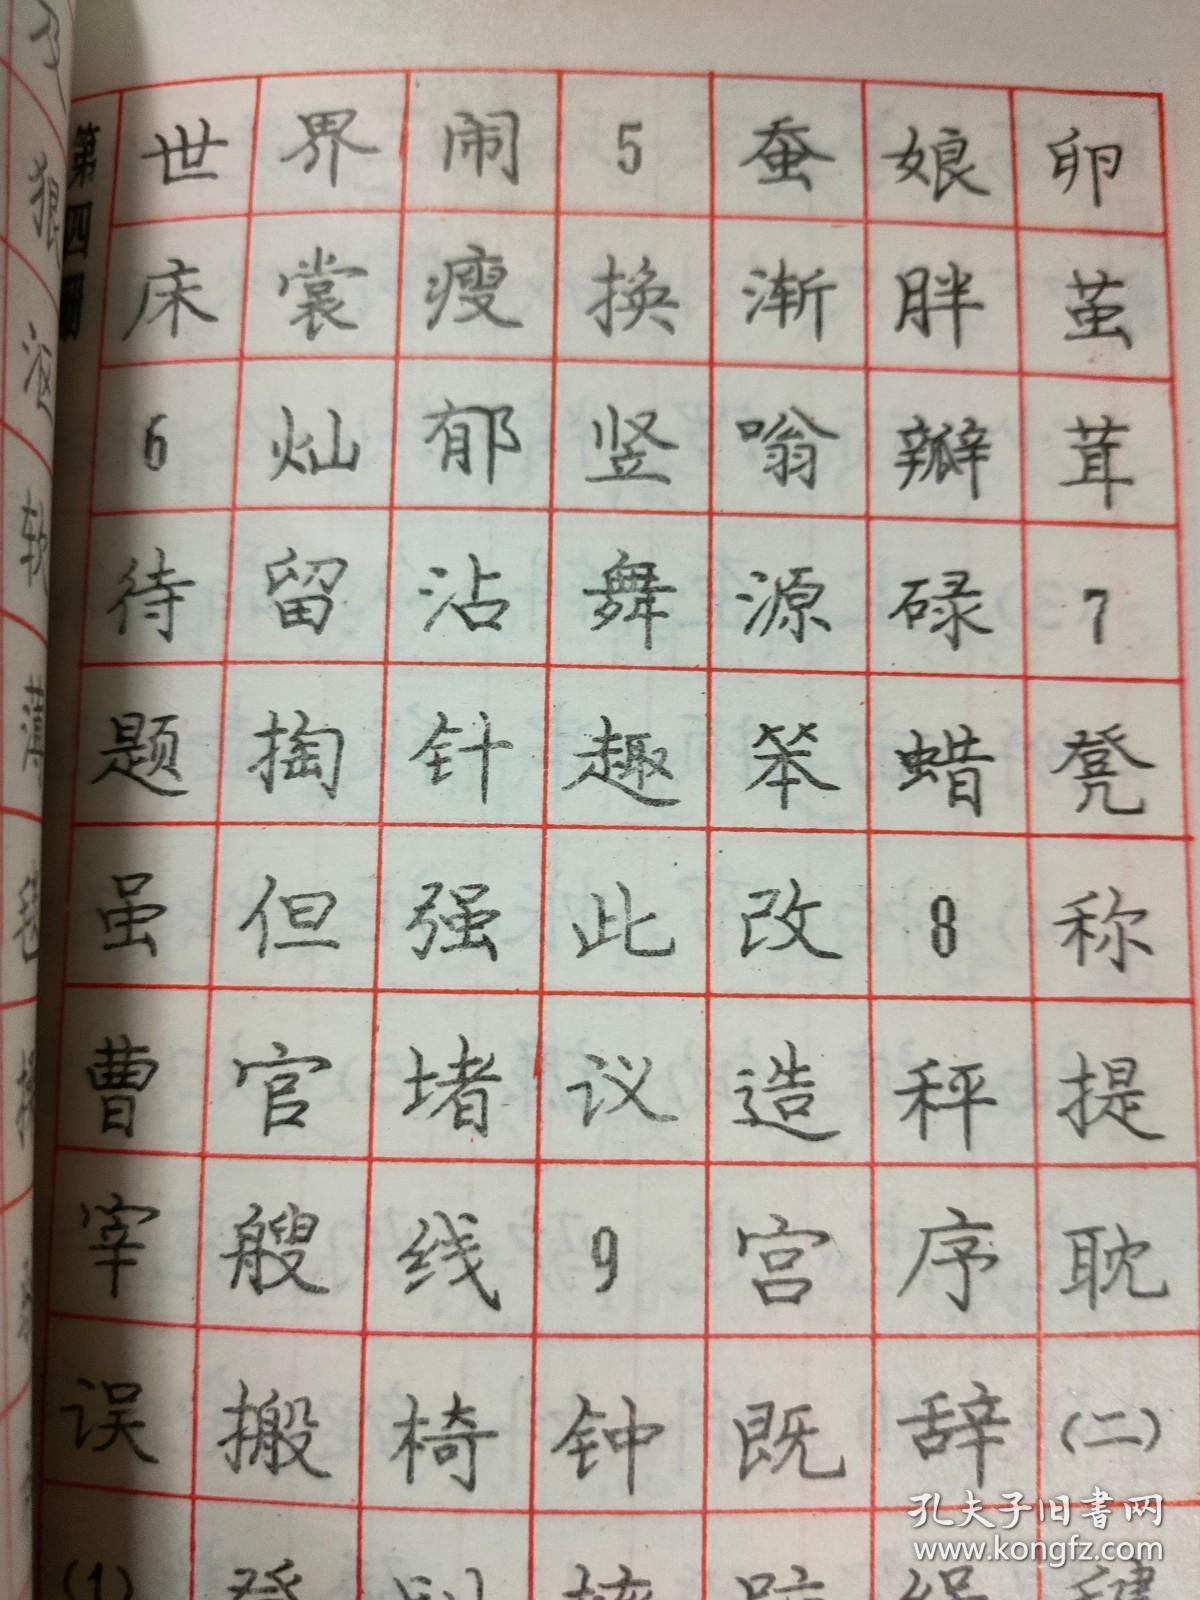 第四册
世 界 闹 5 蚕 娘 卵
床 裳 瘦 换 渐 胖 茧
6 灿 郁 竖 嗡 瓣 茸
待 留 沾 舞 源 碌 7
题 掏 针 趣 笨 蜡 凳
虽 但 强 此 改 8 称
曹 官 堵 议 造 秤 提
宰 艘 线 9 宫 序 耽
误 搬 椅 钟 既 辞 (二)
(1)
孔夫子旧书网
www.kongfz.com